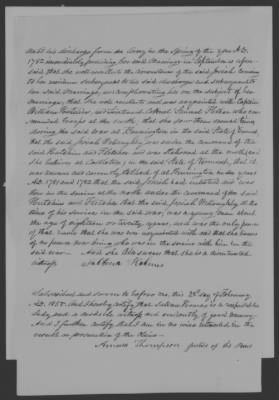 until his discharge from the Army in the Spring of the year A.D.
1782 immediately preceding her said Marriage in September as afore-
said that she well recollects the circumstance of the said Josiah coming
to her residence subsequent to his said discharge and subsequent to
her said Marriage, in complimenting her on the subject of her
marriage; that she well recollects and was acquainted with Captain
William Hutchins, or Lieutenant Colonel Samuel Fletcher who com-
manded troops at the north, that she saw them several times
during the said War at Bennington in the said State of Vermont,
that the said Josiah Willoughby was under the command of the
said Hutchins and Fletcher and was stationed at the north part
she believes at Castleton, in the said State of Vermont, but it
was common and currently talked of at Bennington in the years
A.D. 1781 and 1782 that the said Josiah had enlisted and was
then in the service at the north under the command of said
Hutchins and Fletcher that the said Josiah Willoughby at the
time of his services in the said war, was a young man about
the age of eighteen or twenty years, and was the only person
of that name that she was acquainted with and that she knows
of no person now living who was in the service with him in the
said war. And she also swears that she is a disinterested
witness
Subscribed and sworn to before me, this 28th day of February
A.D. 1855. And I hereby certify that is a respectable
Lady, and a credible witness and evidently of good memory
And I further certify that I am in no wise interested in the
result or prosecution of this Claim
Thompson Justice of the Peace